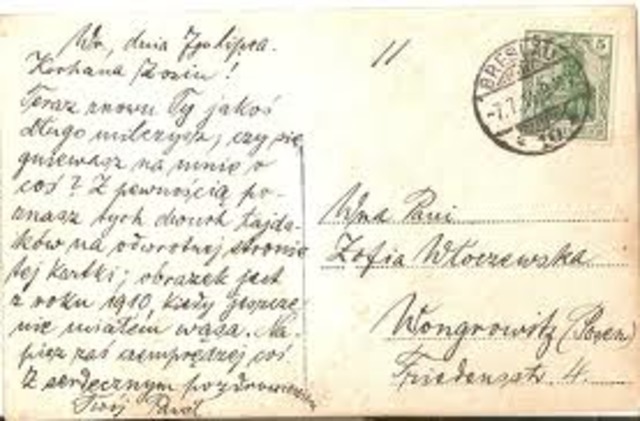 Wr, dnia 7go lipca.
Kochana Zosiu!
Teraz znowu Ty jakoś
długo milczysz, czy się
gniewasz na mnie o
coś? Z pewnością po-
znasz tych dwóch łajda-
ków na odwrotnej stronie
tej kartki; obrazek jest
z roku 1910, kiedy jeszcze
nie miałem wąsa. Na-
pisz zaś czemprędzej coś
Z serdecznym pozdrowieniem
Twój Paweł
11
BRESLAU
-7.7.
5
Wna Pani
Zofia Włoczewska
Wongrowitz (Posen)
Friedensstr 4.